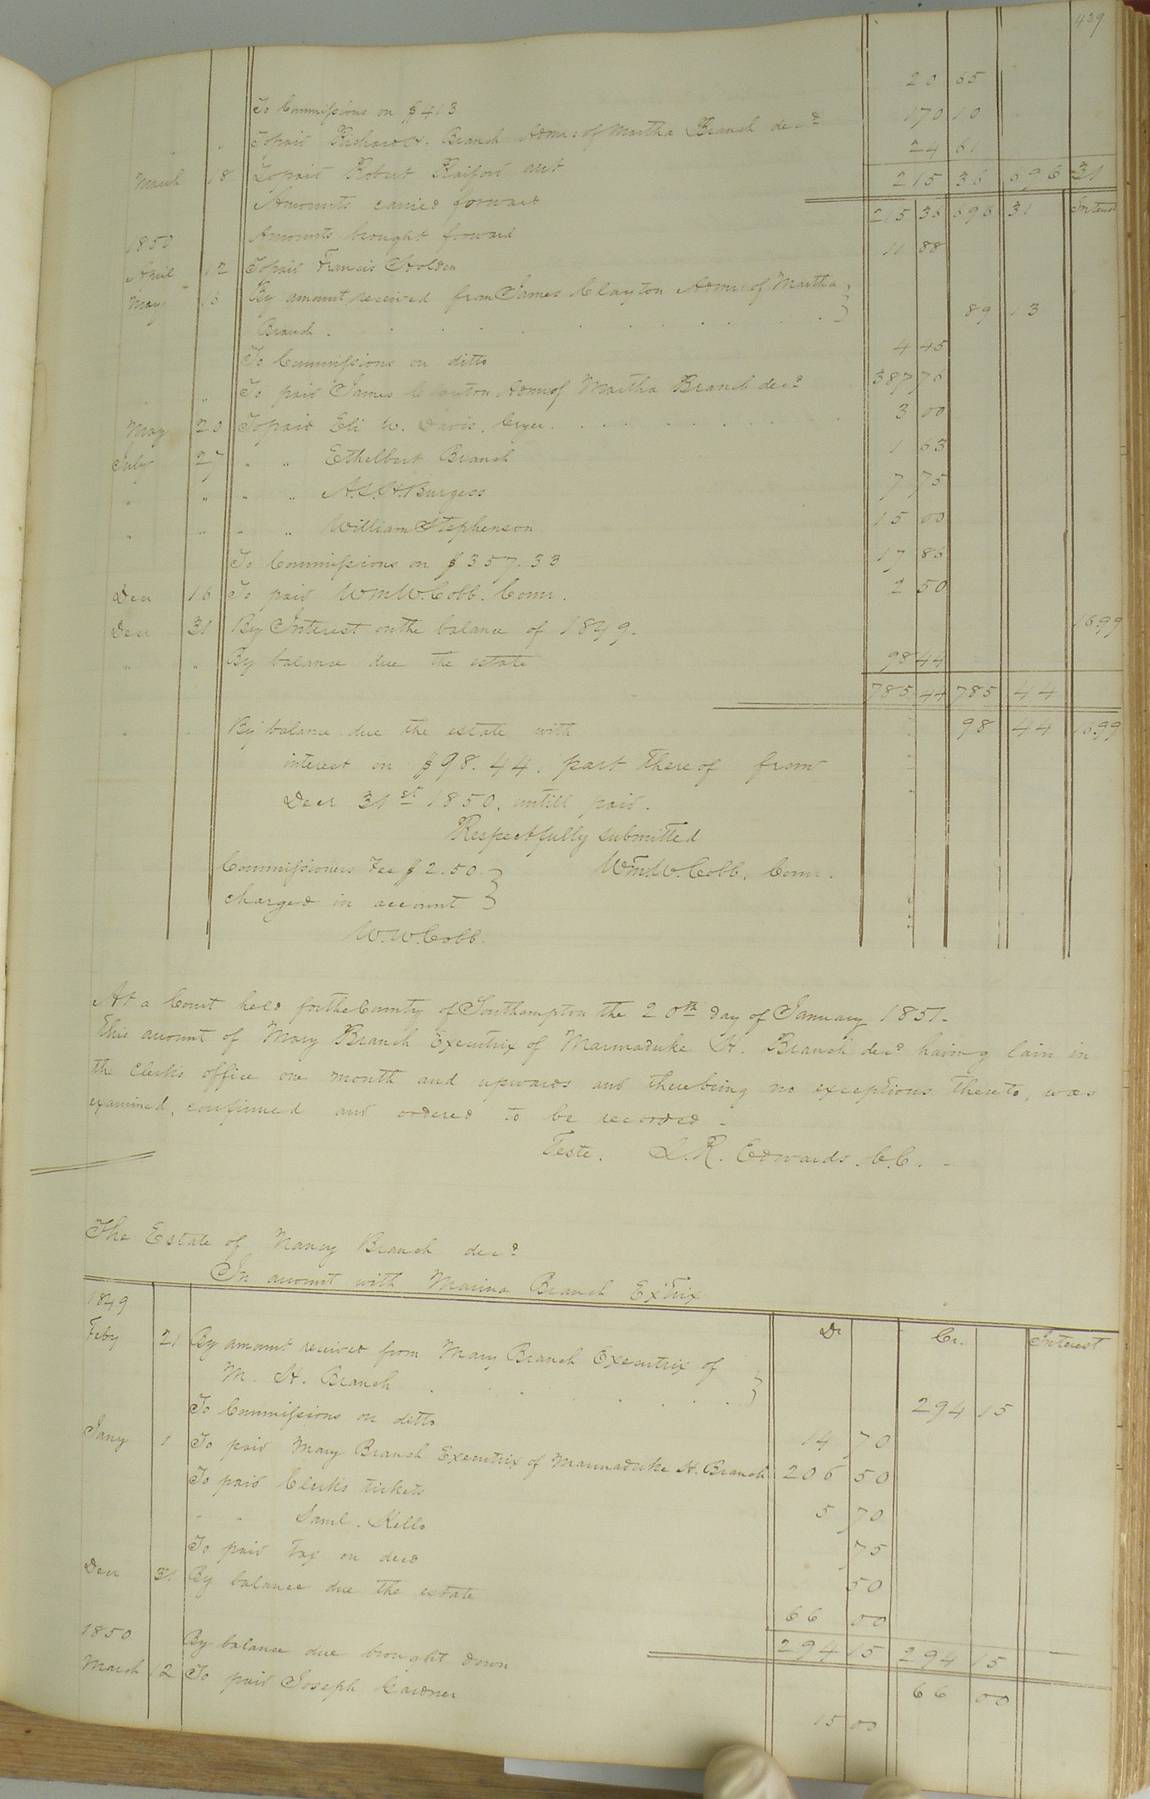 439
To Commissions on $413 20 65
" To paid Richard H. Branch Admr of Martha Branch decd 170 10
March 18 To paid Robert Raiford act 24 61
Amounts carried forward 215 36 696 31
1850 Amounts brought forward 215 36 696 31 Interest
April 12 To paid Francis Holden 11 88
May 3 By amount received from James Clayton Admr of Martha
Branch 89 13
To Commissions on ditto 4 45
" To paid James Clayton Admr of Martha Branch decd 387 76
May 20 To paid Eli W. Davis, Cryer 3 00
July 27 " " Ethelbert Branch 1 63
" " " " A.S.H. Burgess 7 75
" " " " William Stephenson 15 00
To Commissions on $357.33 17 86
Decr 16 To paid Wm W. Cobb. Comr. 2 50
Decr 31 By Interest on the balance of 1849. 16.99
" " By balance due the estate 98 44
785 44 785 44
" " By balance due the estate with 98 44 16.99
interest on $98.44. part thereof from
Decr 31st 1850. untill paid.
Respectfully submitted
Commissioners Fee $2.50 Wm W. Cobb, Comr.
charged in account
W. W. Cobb.
At a Court held for the County of Southampton the 20th day of January 1851.
This account of Mary Branch Executrix of Marmaduke H. Branch decd having lain in
the clerks office one month and upwards and there being no exceptions thereto, was
examined, confirmed and ordered to be recorded -
Teste. L. R. Edwards. C.C. -
The Estate of Nancy Branch decd
In account with Marina Branch Extrix
1849 Dr Cr. Interest
Feby 21 By amount received from Mary Branch Executrix of
M. H. Branch 294 15
To Commissions on ditto 14 70
Jany 1 To paid Mary Branch Executrix of Marmaduke H. Branch 206 50
To paid Clerks tickets 5 70
" " Saml. Kello 75
To paid tax on deed 50
Decr 31 By balance due the estate 66 00
294 15 294 15
1850 By balance due brought down 66 00
March 12 To paid Joseph Gardner 15 00